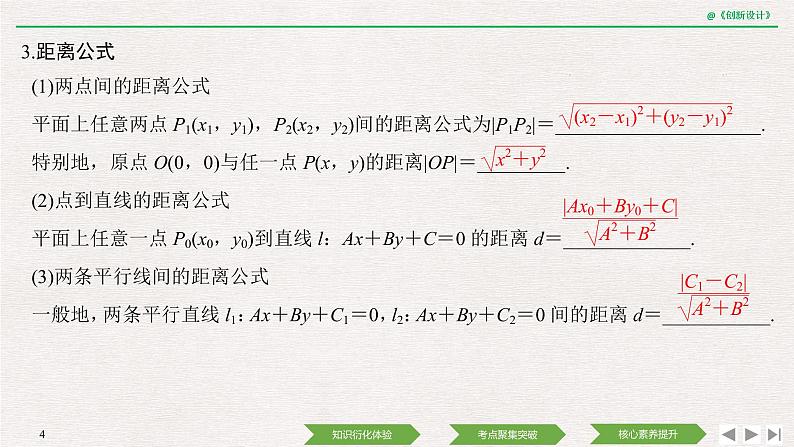 @《创新设计》
3.距离公式
(1)两点间的距离公式
平面上任意两点 P₁(x₁，y₁)，P₂(x₂，y₂)间的距离公式为|P₁P₂|＝√(x₂－x₁)²＋(y₂－y₁)².
特别地，原点 O(0，0)与任一点 P(x，y)的距离|OP|＝√x²＋y².
(2)点到直线的距离公式
平面上任意一点 P₀(x₀，y₀)到直线 l：Ax＋By＋C＝0 的距离 d＝|Ax₀＋By₀＋C|/√A²＋B².
(3)两条平行线间的距离公式
一般地，两条平行直线 l₁：Ax＋By＋C₁＝0，l₂：Ax＋By＋C₂＝0 间的距离 d＝|C₁－C₂|/√A²＋B².
4 知识衍化体验 考点聚集突破 核心素养提升